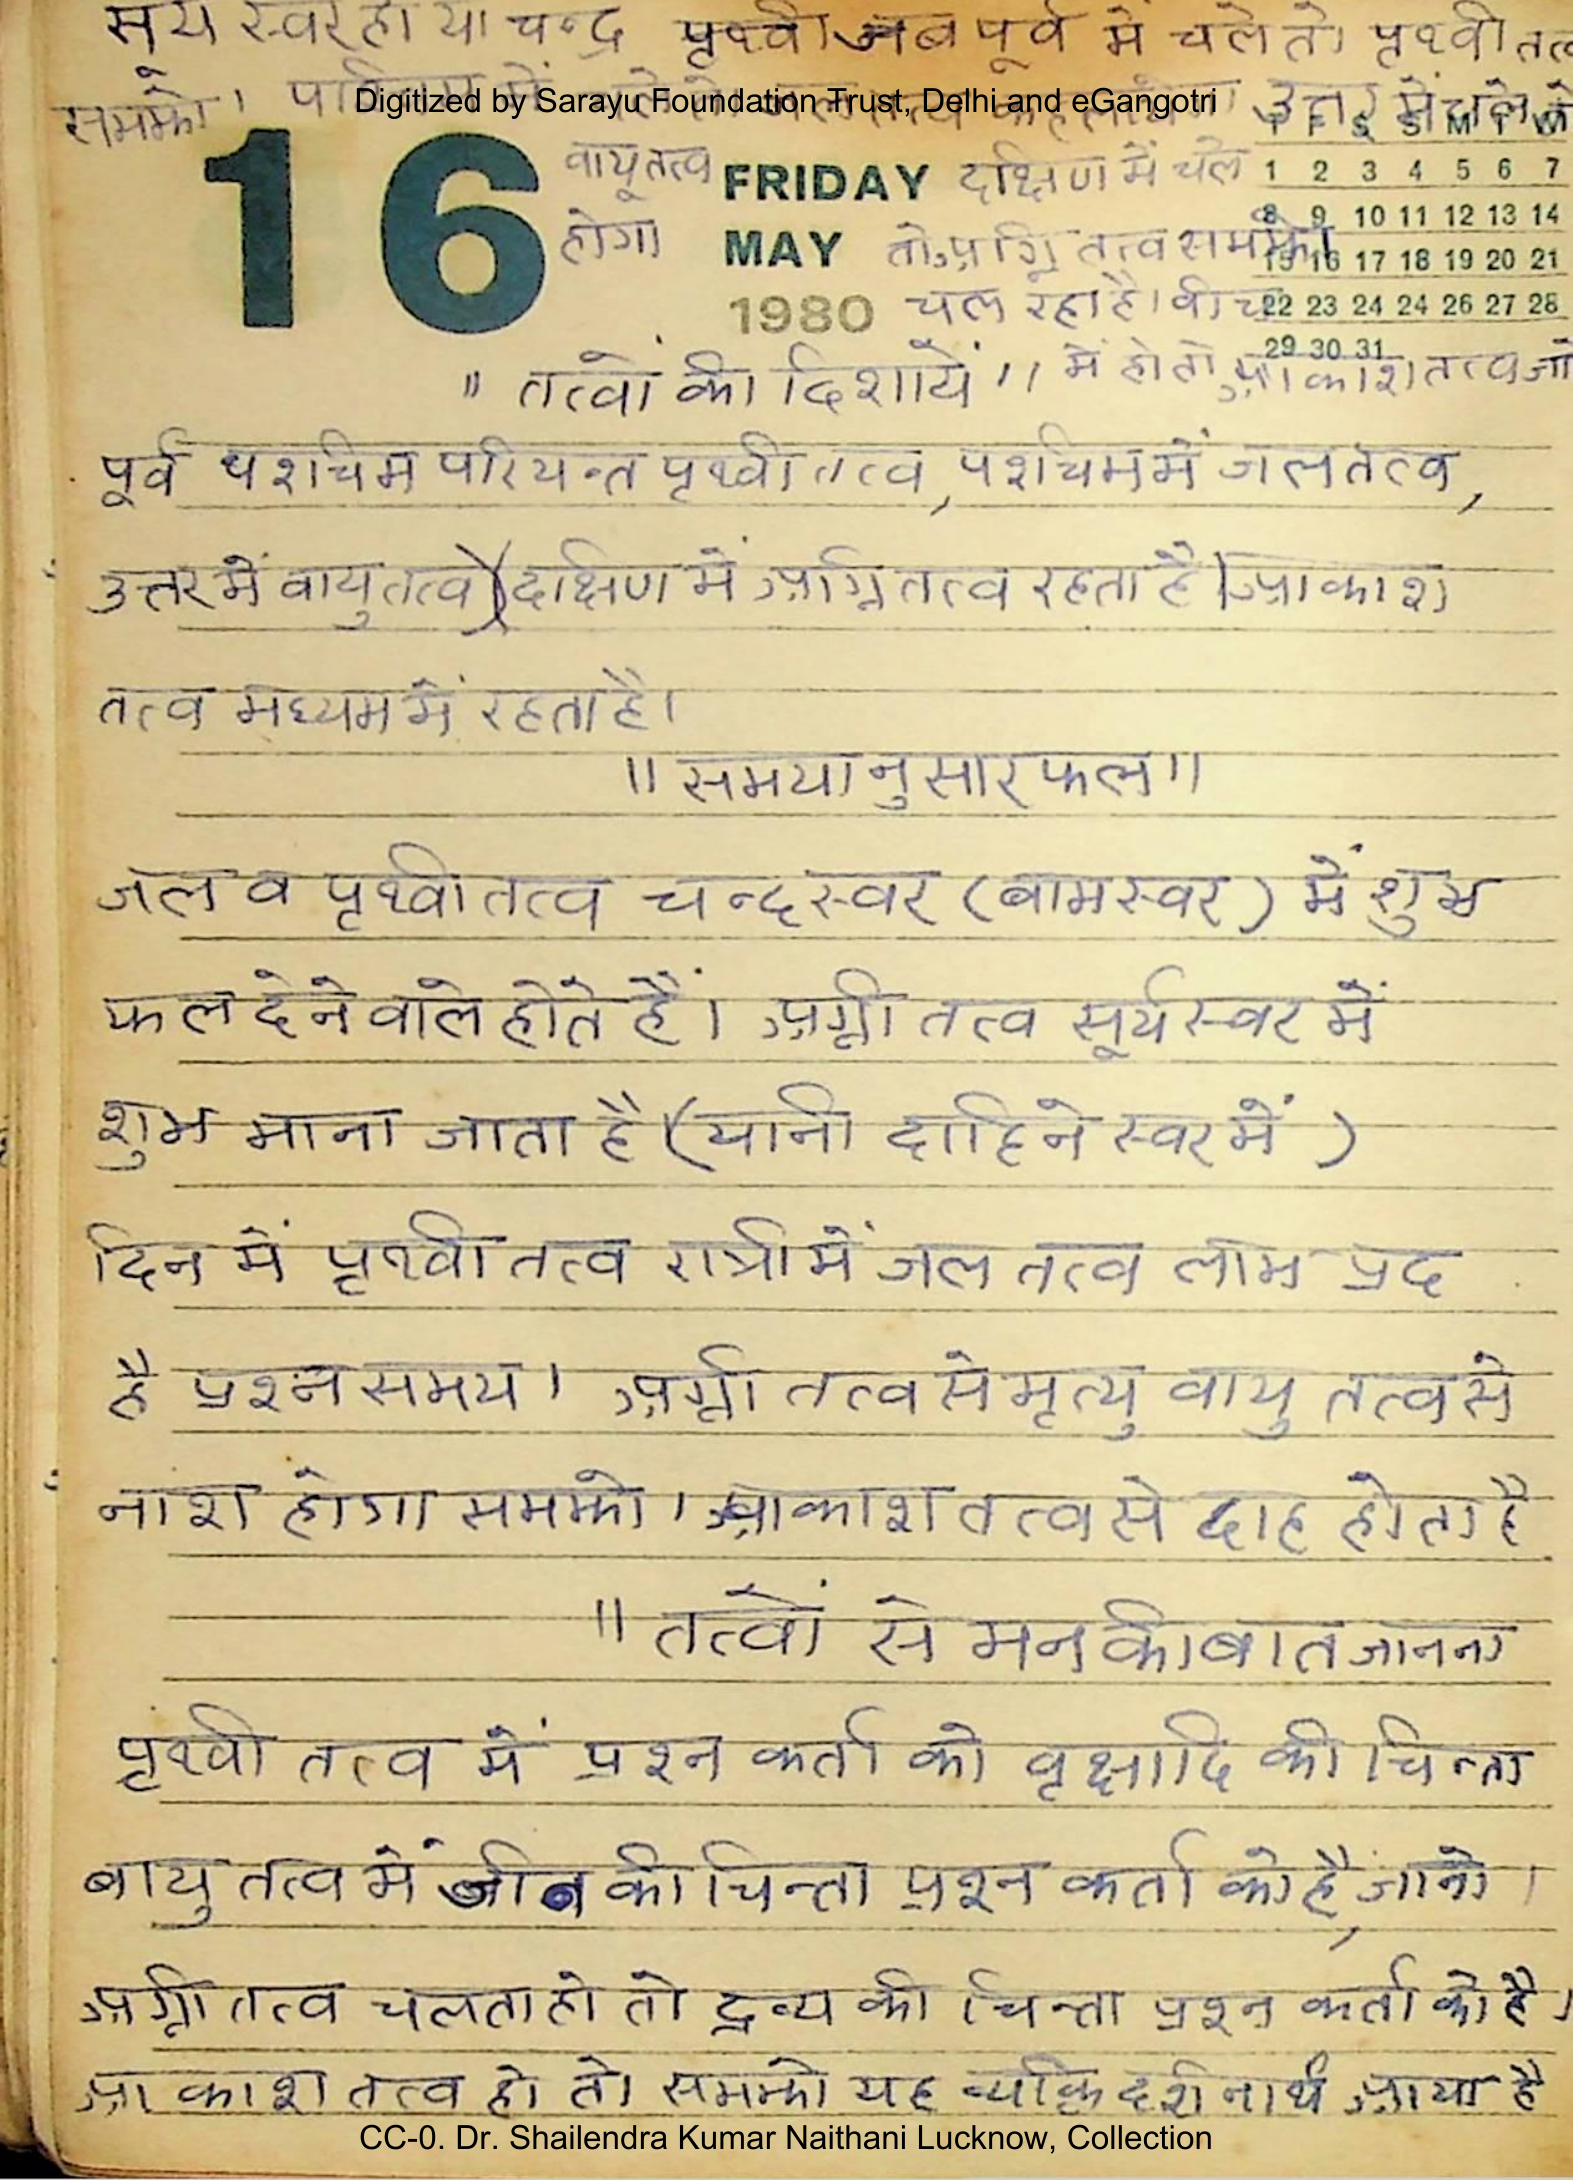 सूर्य स्वर हो या चन्द्र पृथ्वी जब पूर्व में चले तो पृथ्वी तत्व
समझो। उत्तर में चले तो
Digitized by Sarayu Foundation Trust, Delhi and eGangotri
T F S S M T W
16 वायू तत्व FRIDAY दक्षिण में चले 1 2 3 4 5 6 7
8 9 10 11 12 13 14
होगा MAY तो अग्नि तत्व समझो। 15 16 17 18 19 20 21
1980 चल रहा है। बीच 22 23 24 24 26 27 28
29 30 31
" तत्वों की दिशायें ।। में हो तो आकाश तत्व जा
पूर्व पशचिम परियन्त पृथ्वी तत्व, पशचिम में जल तत्व,
उत्तर में वायु तत्व) दक्षिण में अग्नि तत्व रहता है। आकाश
तत्व मध्यम में रहता है।
।। समयानुसार फल ।।
जल व पृथ्वी तत्व चन्द्र स्वर (बाम स्वर) में शुभ
फल देने वाले होते हैं। अग्नी तत्व सूर्य स्वर में
शुभ माना जाता है (यानी दाहिने स्वर में )
दिन में पृथ्वी तत्व रात्री में जल तत्व लाभ प्रद
है प्रश्न समय। अग्नी तत्व से मृत्यु वायु तत्व से
नाश होगा समझो। आकाश तत्व से दाह होता है
।। तत्वों से मन की बात जानना
पृथ्वी तत्व में प्रश्न कर्ता को वृक्षादि की चिन्ता
बायु तत्व में जीव की चिन्ता प्रश्न कर्ता को है, जानो।
अग्नी तत्व चलता हो तो द्रव्य की चिन्ता प्रश्न कर्ता को है।
आकाश तत्व हो तो समझो यह व्यक्ति दर्शनार्थ आया है
CC-0. Dr. Shailendra Kumar Naithani Lucknow, Collection